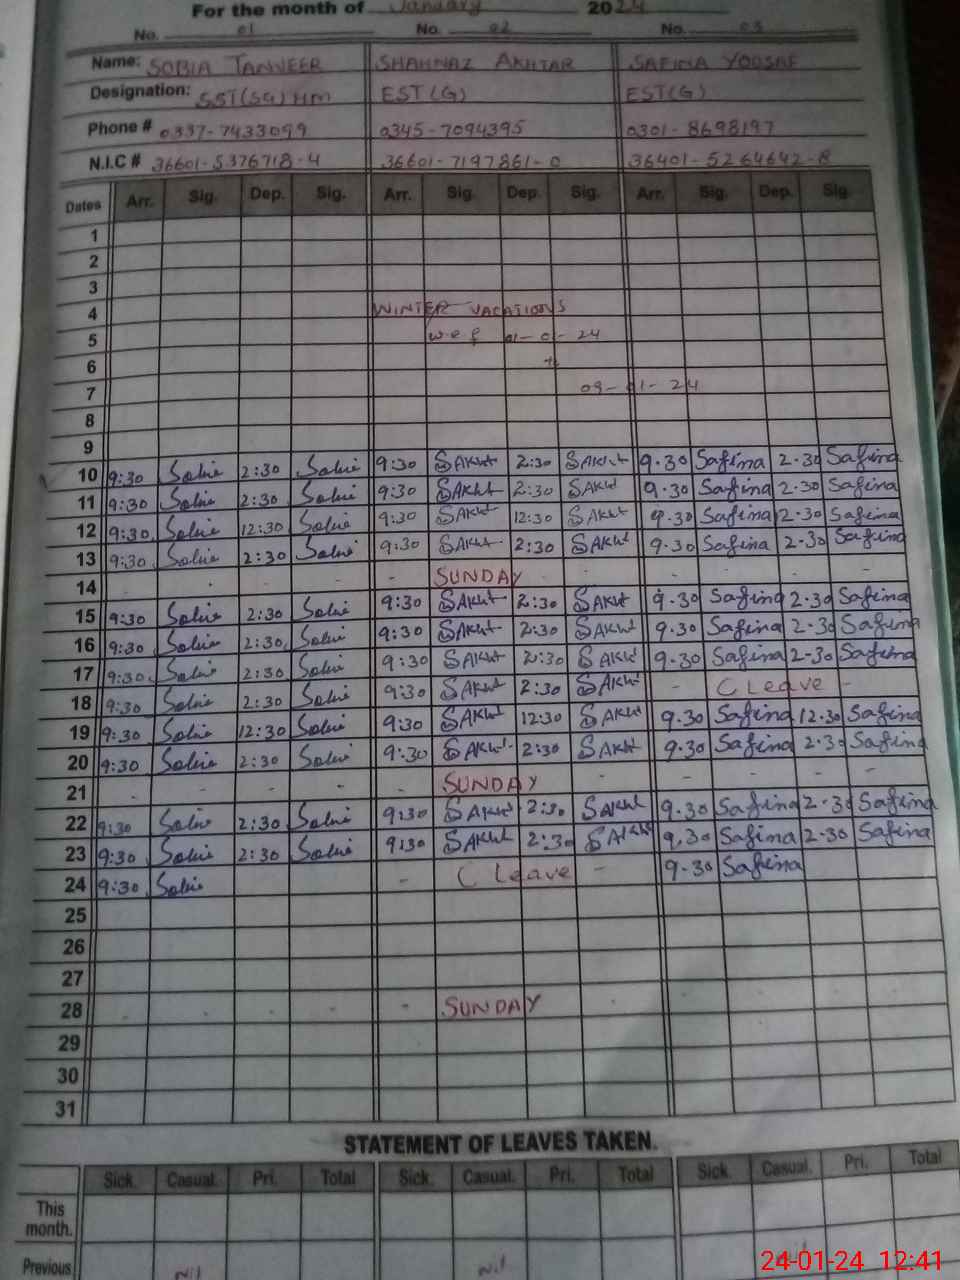 For the month of January 2024
No. 01 No. 02 No. 03
Name: SOBIA TANVEER SHAHNAZ AKHTAR SAFINA YOUSAF
Designation: SST(SG) HM EST(G) EST(G)
Phone # 0337-7433099 0345-7094395 0301-8698197
N.I.C # 36601-5376718-4 36601-7197861-0 36401-5264642-8
Dates Arr. Sig. Dep. Sig. Arr. Sig. Dep. Sig. Arr. Sig. Dep. Sig.
1
2
3
4 WINTER VACATIONS
5 w.e.f 01-01-24
6 to
7 09-01-24
8
9
10 9:30 Sobia 2:30 Sobia 9:30 SAkht 2:30 SAkht 9.30 Safina 2.30 Safina
11 9:30 Sobia 2:30 Sobia 9:30 SAkht 2:30 SAkht 9.30 Safina 2.30 Safina
12 9:30 Sobia 12:30 Sobia 9:30 SAkht 12:30 SAkht 9.30 Safina 2.30 Safina
13 9:30 Sobia 2:30 Sobia 9:30 SAkht 2:30 SAkht 9.30 Safina 2.30 Safina
14 - - - - - SUNDAY - - - - - -
15 9:30 Sobia 2:30 Sobia 9:30 SAkht 2:30 SAkht 9.30 Safina 2.30 Safina
16 9:30 Sobia 2:30 Sobia 9:30 SAkht 2:30 SAkht 9.30 Safina 2.30 Safina
17 9:30 Sobia 2:30 Sobia 9:30 SAkht 2:30 SAkht 9.30 Safina 2.30 Safina
18 9:30 Sobia 2:30 Sobia 9:30 SAkht 2:30 SAkht - C Leave -
19 9:30 Sobia 12:30 Sobia 9:30 SAkht 12:30 SAkht 9.30 Safina 12.30 Safina
20 9:30 Sobia 2:30 Sobia 9:30 SAkht 2:30 SAkht 9.30 Safina 2.30 Safina
21 - - - - - SUNDAY - - - - -
22 9:30 Sobia 2:30 Sobia 9:30 SAkht 2:30 SAkht 9.30 Safina 2.30 Safina
23 9:30 Sobia 2:30 Sobia 9:30 SAkht 2:30 SAkht 9.30 Safina 2.30 Safina
24 9:30 Sobia - C Leave - 9.30 Safina
25
26
27
28 - - - - - SUNDAY - - - - -
29
30
31
STATEMENT OF LEAVES TAKEN.
Sick. Casual. Pri. Total Sick. Casual. Pri. Total Sick. Casual. Pri. Total
This
month.
Previous Nil Nil Nil
24-01-24 12:41